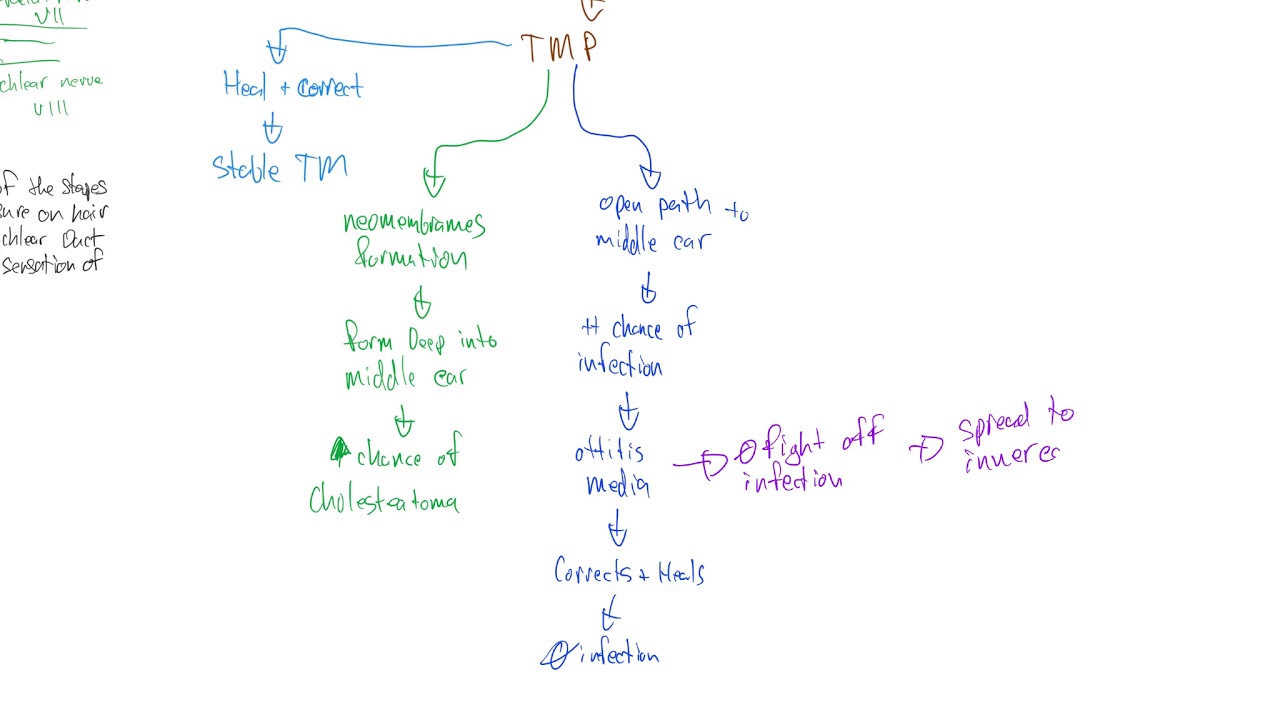 VII
chlear nerve
VIII
of the stapes
ure on hair
chlear Duct
sensation of
TMP
Heal + correct
Stable TM
neomembrames
formation
form Deep into
middle ear
chance of
Cholesteatoma
open path to
middle ear
++ chance of
infection
ottitis
media
Corrects + Heals
Ø infection
Ø fight off
infection
spread to
innerec